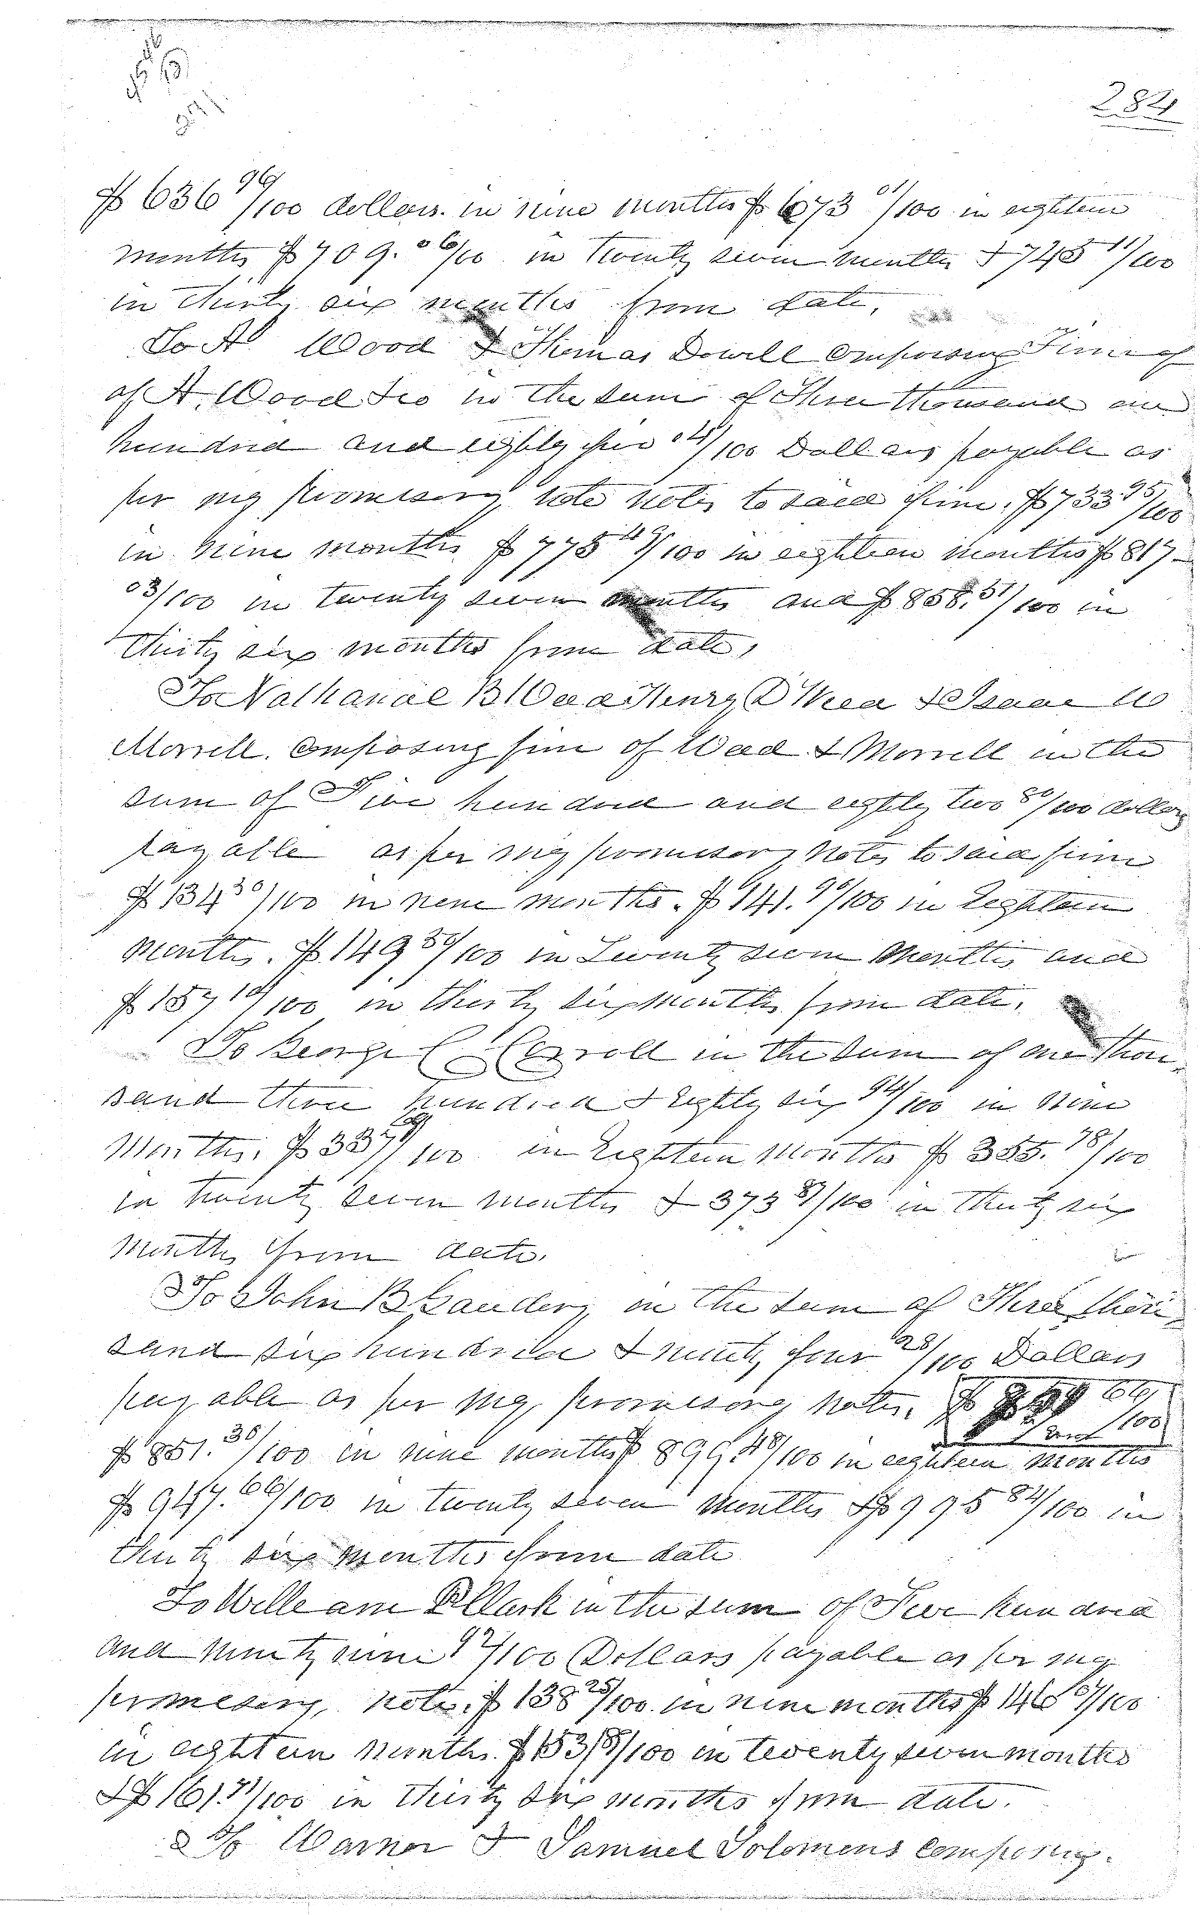 284
$ 636 96/100 dollars. in nine months $ 673 01/100 in eighteen
months $ 709. 06/100 in twenty seven months & 745 11/100
in thirty six months from date.
To A Wood & Thomas Dowell composing Firm of
of A. Wood & co in the sum of Three thousand one
hundred and eighty five 04/100 Dollars payable as
per my promisory note notes to said firm. $ 733 95/100
in nine months $ 775 49/100 in eighteen months $ 817
03/100 in twenty seven months and $ 858. 51/100 in
thirty six months from date,
To Nathanal B Weed Henry D Weed & Isaac W
Morrell. composing firm of Weed & Morrell in the
sum of Five hundred and eighty two 80/100 dollars
payable as per my promisory notes to said firm
$ 134 30/100 in nine months. $ 141. 90/100 in Eighteen
months. $ 149 50/100 in Twenty seven months and
$ 157 10/100 in thirty six months from date.
To George C Carroll in the sum of one thou
sand three hundred & Eighty six 94/100 in nine
Months. $ 337 /100 in Eighteen months $ 355. 78/100
in twenty seven months & 373 87/100 in thirty six
months from date.
To John B in the sum of Three thou
sand six hundred & ninety four 28/100 Dollars
payable as per my promisory notes. $ 66/100
$ 851. 30/100 in nine months $ 899. 48/100 in eighteen months
$ 947. 66/100 in twenty seven months & $ 995 84/100 in
thirty six months from date
To William P Clark in the sum of Five hundred
and ninety nine 92/100 Dollars payable as per my
promisory note. $ 138 25/100 in nine months $ 146 07/100
in eighteen months. $ 153 89/100 in twenty seven months
& $ 161. 71/100 in thirty six months from date.
& To Warner & Samuel Solomons composing.